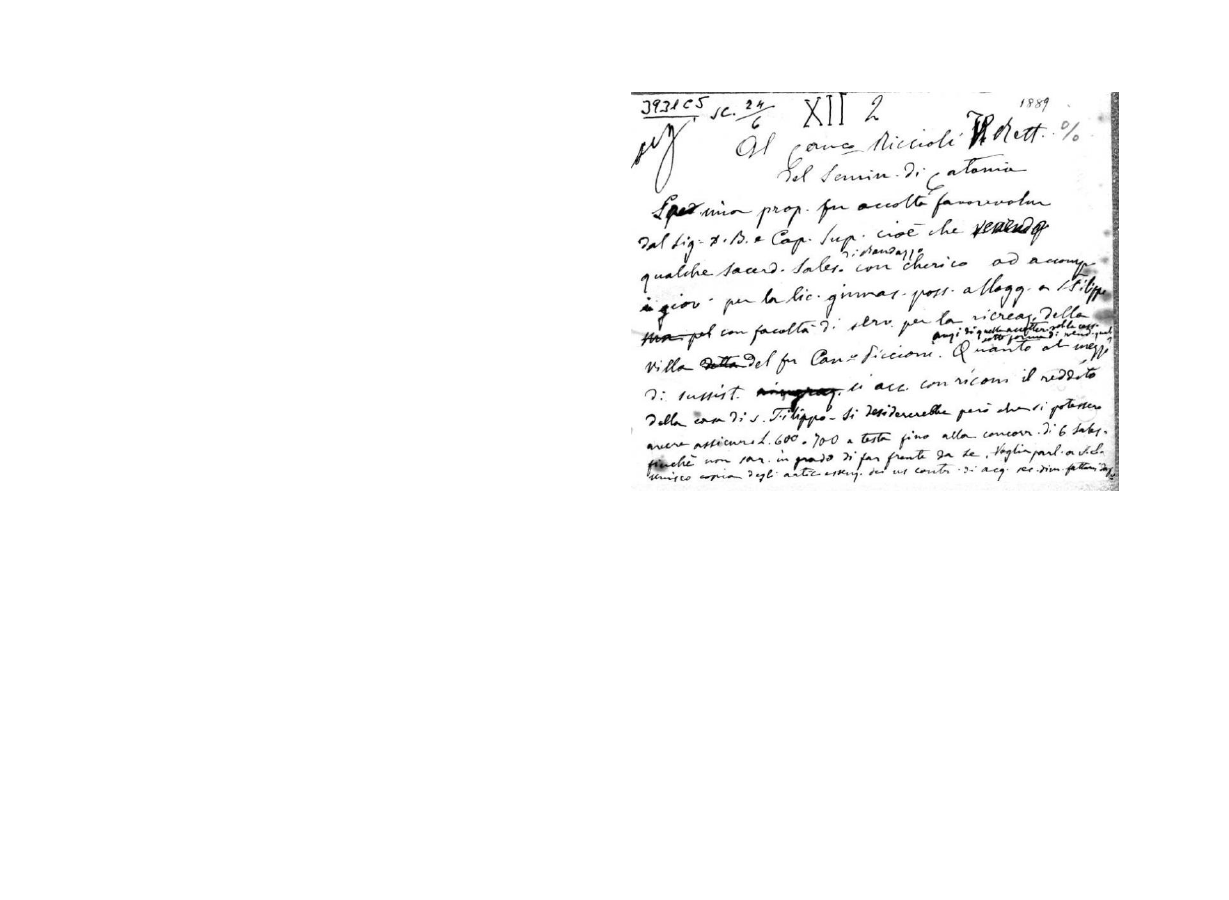 3931C5 sc. 24/6 XII 2 1889
Al Can.co Riccioli Rett. %
del Semin. di Catania
mia prop. fu accolta favorevolm
dal Sig. D. B. e Cap. Sup. cioè che
di Randazzo
qualche sacerd. Sales. con cherico ad accomp
i giov. per la lic. ginnas. poss. allogg. a S. Filippo
pel con facoltà di serv. per la ricreaz. della
anzi di quella
villa detta del fu Can.co Piccioni. Quanto ai mezzi
di sussist. si acc. con ricons il reddito
della casa di S. Filippo. Si desidererebbe però che si potessero
avere assicur. L. 600 o 700 a testa fino alla concorr. di 6 Sales.
finchè non sar. in grado di far fronte da se. Voglia parl. a
Unisco copia degli artic. di acq.